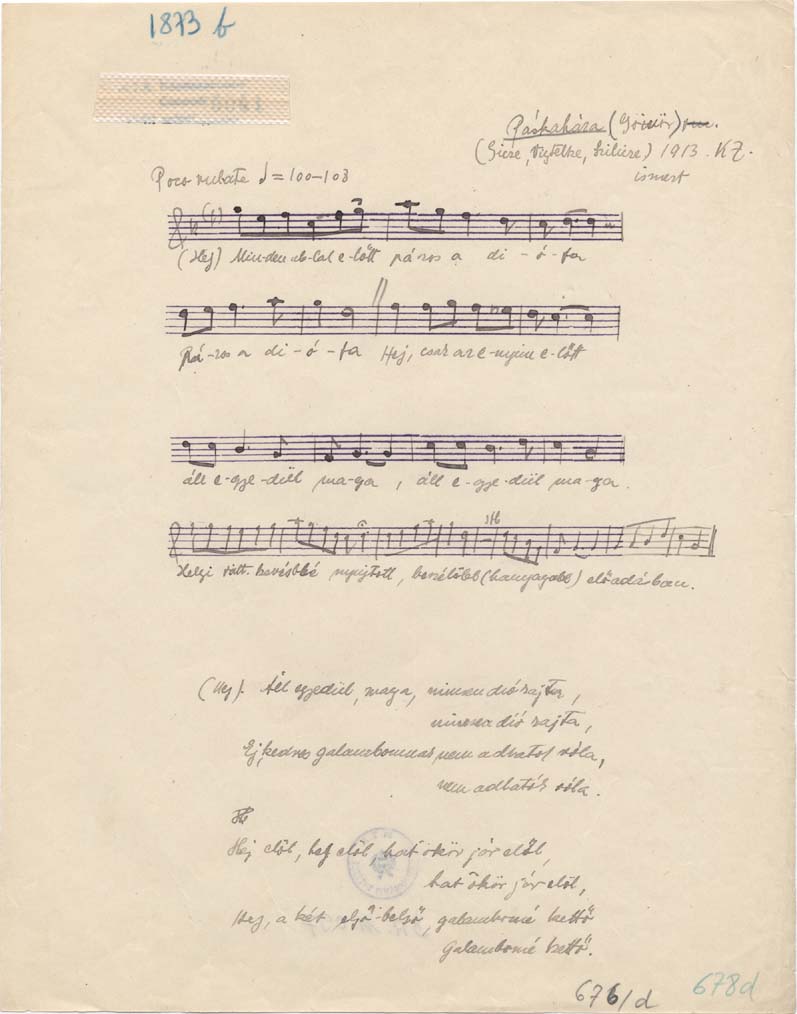 1873 b
Páskaháza (Gömör)
(Gicze, Vigtelke, Szilicze) 1913. KZ.
ismert
Poco rubato ♩=100–108
(Hej) Min-den ab-lak e-lőtt páros a di-ó-fa
Pá-ros a di-ó-fa Hej, csak az e-nyim e-lőtt
áll e-gye-dül ma-ga, áll e-gye-dül ma-ga.
Helyi vált. kevésbbé nyujtott, beszélőbb (hanyagabb) előadásban.
(Hej). Áll egyedül, maga, nincsen dió rajta,
nincsen dió rajta,
Ej, kedves galambomnak nem adhatok róla,
nem adhatok róla.
He
Hej elöl, hej elöl, hat ökör jár elöl,
hat ökör jár elöl,
Hej, a két első-belső, galambomé kettő
galambomé kettő.
676/d
678d